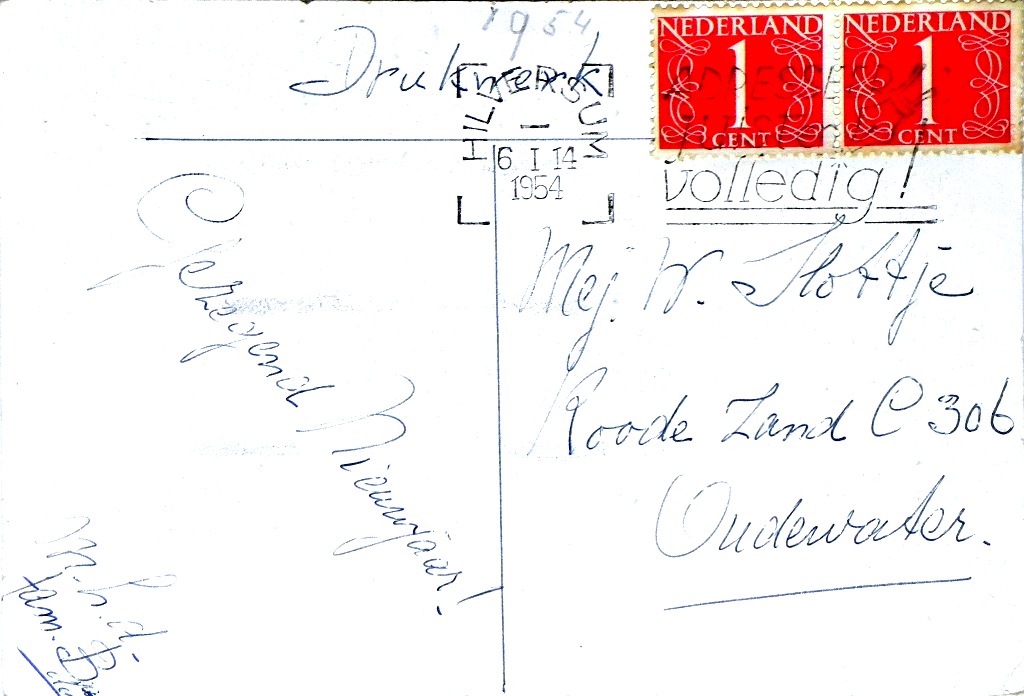 1954
Drukwerk
NEDERLAND
1
CENT
NEDERLAND
1
CENT
HILVERSUM
6 I 14
1954
ADRESSEER
volledig!
Gezegend Nieuwjaar!
Mej. W. Slottje
Roode Zand C 306
Oudewater.
Fam.